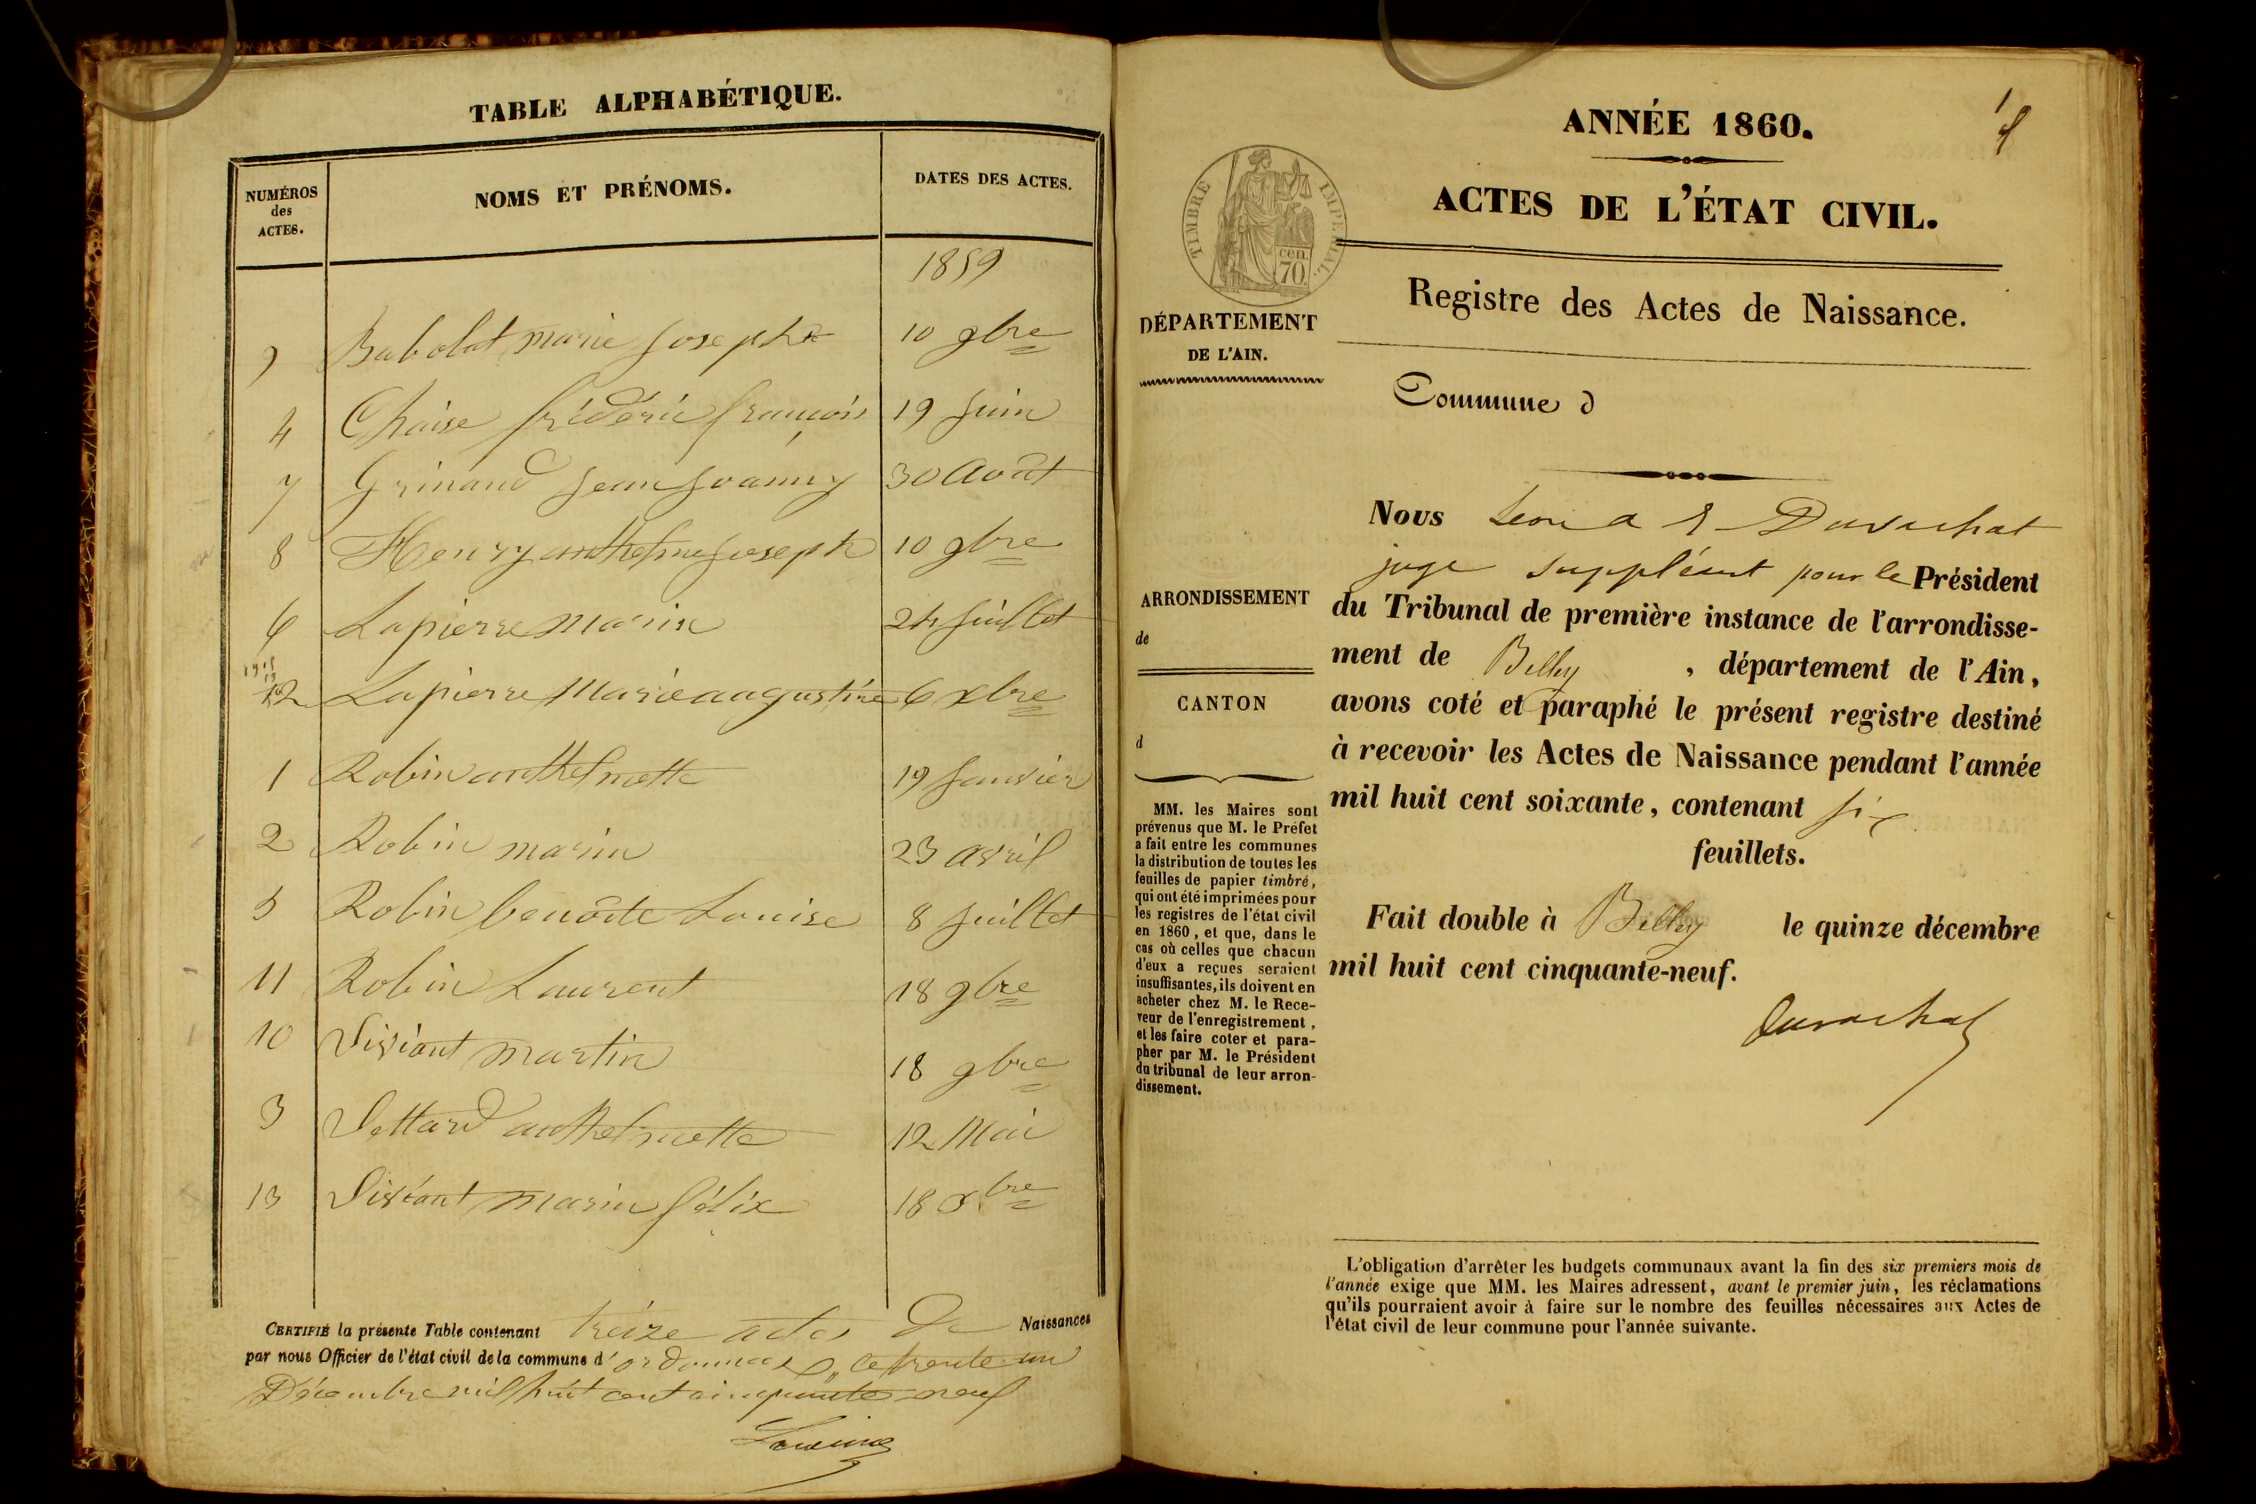 TABLE ALPHABÉTIQUE.
NUMÉROS des ACTES. NOMS ET PRÉNOMS. DATES DES ACTES.
1859
9 Babolat marie josephe 10 9bre
4 Chaise frédéric françois 19 juin
7 Grinand jean joanny 30 Août
8 Henry anthelme joseph 10 9bre
6 Lapierre Marin 24 juillet
12 Lapierre Marie augustine 6 xbre
1 Robin anthelmette 19 janvier
2 Robin marin 23 avril
5 Robin benoîte Louise 8 juillet
11 Robin Laurent 18 9bre
10 Viviant martin 18 9bre
3 Vettard anthelmette 12 Mai
13 Viviant marin félix 18 xbre
CERTIFIÉ la présente Table contenant treize actes de Naissances
par nous Officier de l'état civil de la commune d'ordonnas, ce trente un
Décembre mil huit cent cinquante neuf
1
ANNÉE 1860.
ACTES DE L'ÉTAT CIVIL.
TIMBRE IMPERIAL.
cen.
70.
Registre des Actes de Naissance.
DÉPARTEMENT
DE L'AIN.
Commune d
ARRONDISSEMENT
de
CANTON
d
MM. les Maires sont
prévenus que M. le Préfet
a fait entre les communes
la distribution de toutes les
feuilles de papier timbré,
qui ont été imprimées pour
les registres de l'état civil
en 1860, et que, dans le
cas où celles que chacun
d'eux a reçues seraient
insuffisantes, ils doivent en
acheter chez M. le Rece-
veur de l'enregistrement,
et les faire coter et para-
pher par M. le Président
du tribunal de leur arron-
dissement.
Nous Duvachat
juge suppléant pour le Président
du Tribunal de première instance de l'arrondisse-
ment de Belley, département de l'Ain,
avons coté et paraphé le présent registre destiné
à recevoir les Actes de Naissance pendant l'année
mil huit cent soixante, contenant six
feuillets.
Fait double à Belley le quinze décembre
mil huit cent cinquante-neuf.
Duvachat
L'obligation d'arrêter les budgets communaux avant la fin des six premiers mois de
l'année exige que MM. les Maires adressent, avant le premier juin, les réclamations
qu'ils pourraient avoir à faire sur le nombre des feuilles nécessaires aux Actes de
l'état civil de leur commune pour l'année suivante.